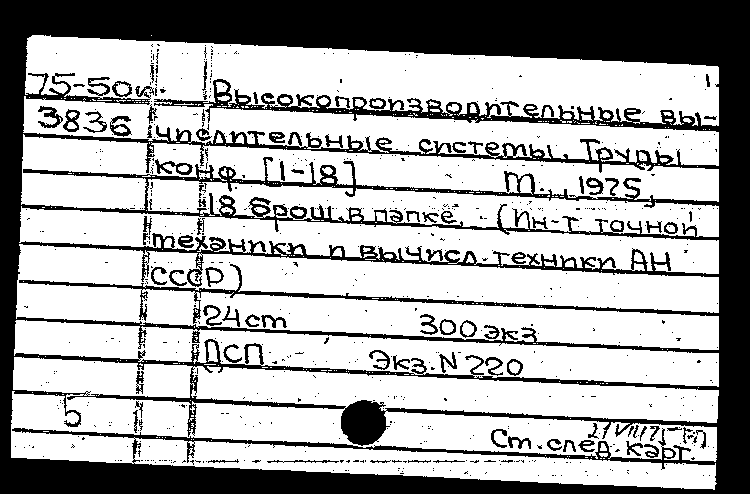 1.
75-50к. Высокопроизводительные вы-
3836 числительные системы. Труды
конф. [1-18] М., 1975,
18 брош. в папке. (Ин-т точной
механики и вычисл. техники АН
СССР)
24 cm 300 экз
ДСП. Экз. N 220
5
Ст. след. карт.